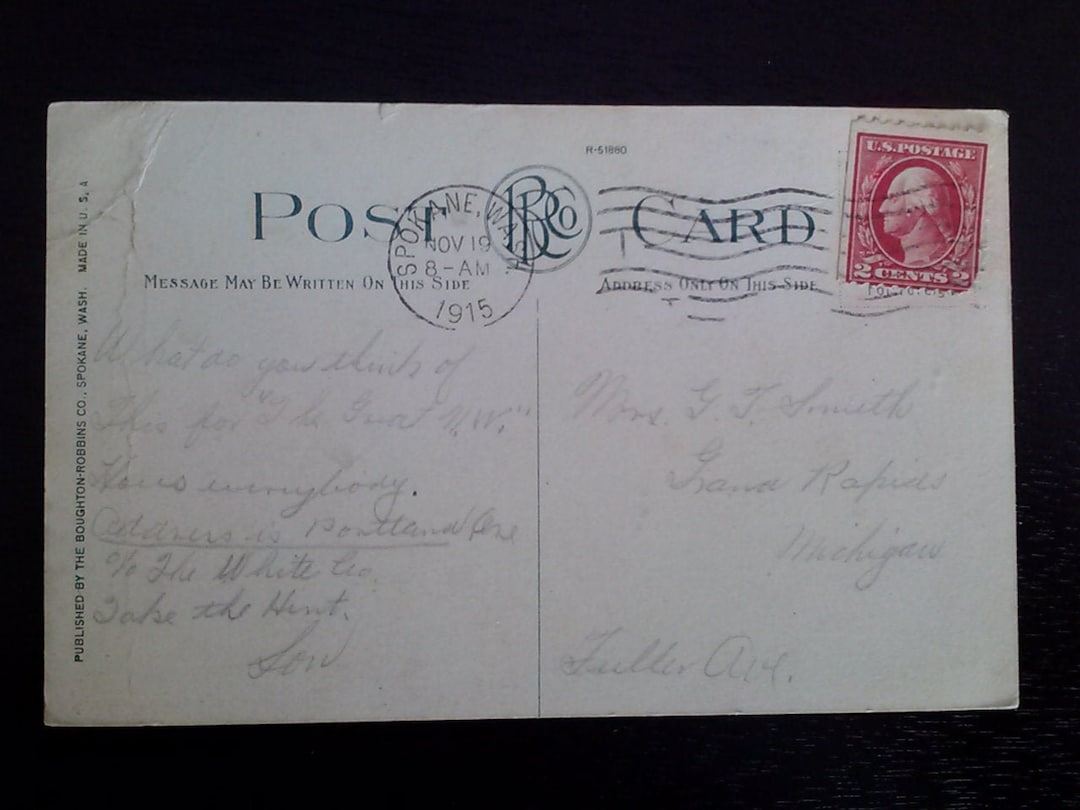 R-51880
POST CARD
BRCo
SPOKANE, WASH.
NOV 19
8-AM
1915
U.S. POSTAGE
2 CENTS 2
MESSAGE MAY BE WRITTEN ON THIS SIDE
ADDRESS ONLY ON THIS SIDE
PUBLISHED BY THE BOUGHTON-ROBBINS CO., SPOKANE, WASH. MADE IN U. S. A
What do you think of
This for "The Great N.W."
Hows everybody.
Address is Portland Ore
c/o The White Co.
Take the Hint.
Son
Mrs. G. T. Smith
Grand Rapids
Michigan
Fuller Ave.